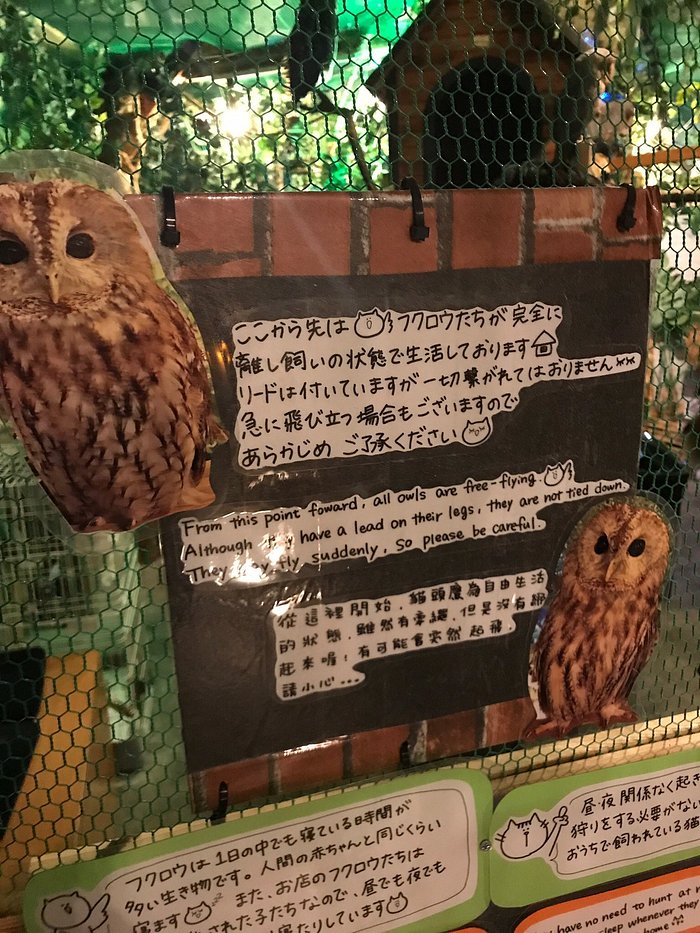 ここから先は フクロウたちが完全に
離し飼いの状態で生活しております
リードは付いていますが一切繋がれてはおりません
急に飛び立つ場合もございますので
あらかじめ ご了承ください
From this point foward, all owls are free-flying.
Although they have a lead on their legs, they are not tied down.
They may fly suddenly, so please be careful.
從這裡開始,貓頭鷹為自由生活
的狀態,雖然有牽繩,但是沒有綁
起來喔!有可能會突然起飛,
請小心...
フクロウは1日の中でも寝ている時間が
多い生き物です。人間の赤ちゃんと同じくらい
寝ます また、お店のフクロウたちは
された子たちなので、昼でも夜でも
寝たりしています
昼夜関係なく起き
狩りをする必要がない
おうちで飼われている猫
have no need to hunt at
sleep whenever they
home